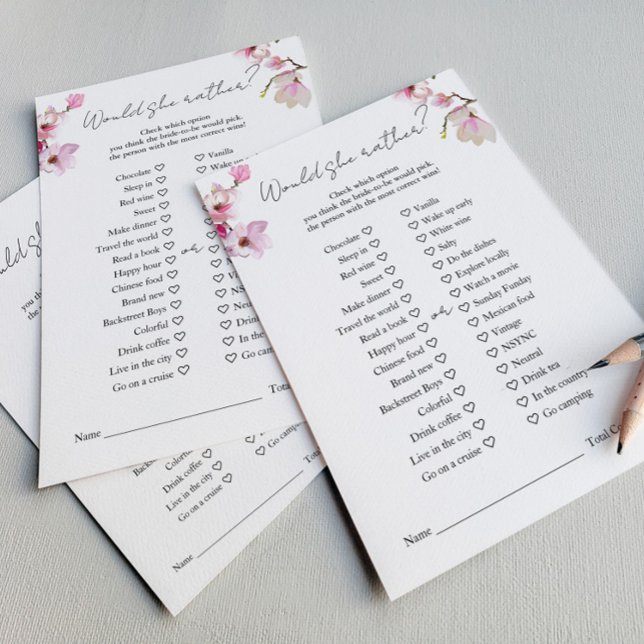 Would she rather?
Check which option
you think the bride-to-be would pick,
the person with the most correct wins!
Chocolate ♡ ♡ Vanilla
Sleep in ♡ ♡ Wake up
Red wine ♡
Sweet ♡
Make dinner ♡
Travel the world ♡
Read a book ♡ or
Happy hour ♡
Chinese food ♡
Brand new ♡ ♡ NSYNC
Backstreet Boys ♡ ♡ Neutral
Colorful ♡ ♡ Drink
Drink coffee ♡ ♡ In the
Live in the city ♡ ♡ Go camping
Go on a cruise ♡
Name
Would she rather?
Check which option
you think the bride-to-be would pick,
the person with the most correct wins!
Chocolate ♡ ♡ Vanilla
Sleep in ♡ ♡ Wake up early
Red wine ♡ ♡ White wine
Sweet ♡ ♡ Salty
Make dinner ♡ ♡ Do the dishes
Travel the world ♡ ♡ Explore locally
Read a book ♡ or ♡ Watch a movie
Happy hour ♡ ♡ Sunday Funday
Chinese food ♡ ♡ Mexican food
Brand new ♡ ♡ Vintage
Backstreet Boys ♡ ♡ NSYNC
Colorful ♡ ♡ Neutral
Drink coffee ♡ ♡ Drink tea
Live in the city ♡ ♡ In the country
Go on a cruise ♡ ♡ Go camping
Name Total Co
you think
the
Backstreet Boys ♡
Colorful ♡
Drink coffee ♡
Live in the city ♡ ♡ Go camping
Go on a cruise ♡
Name